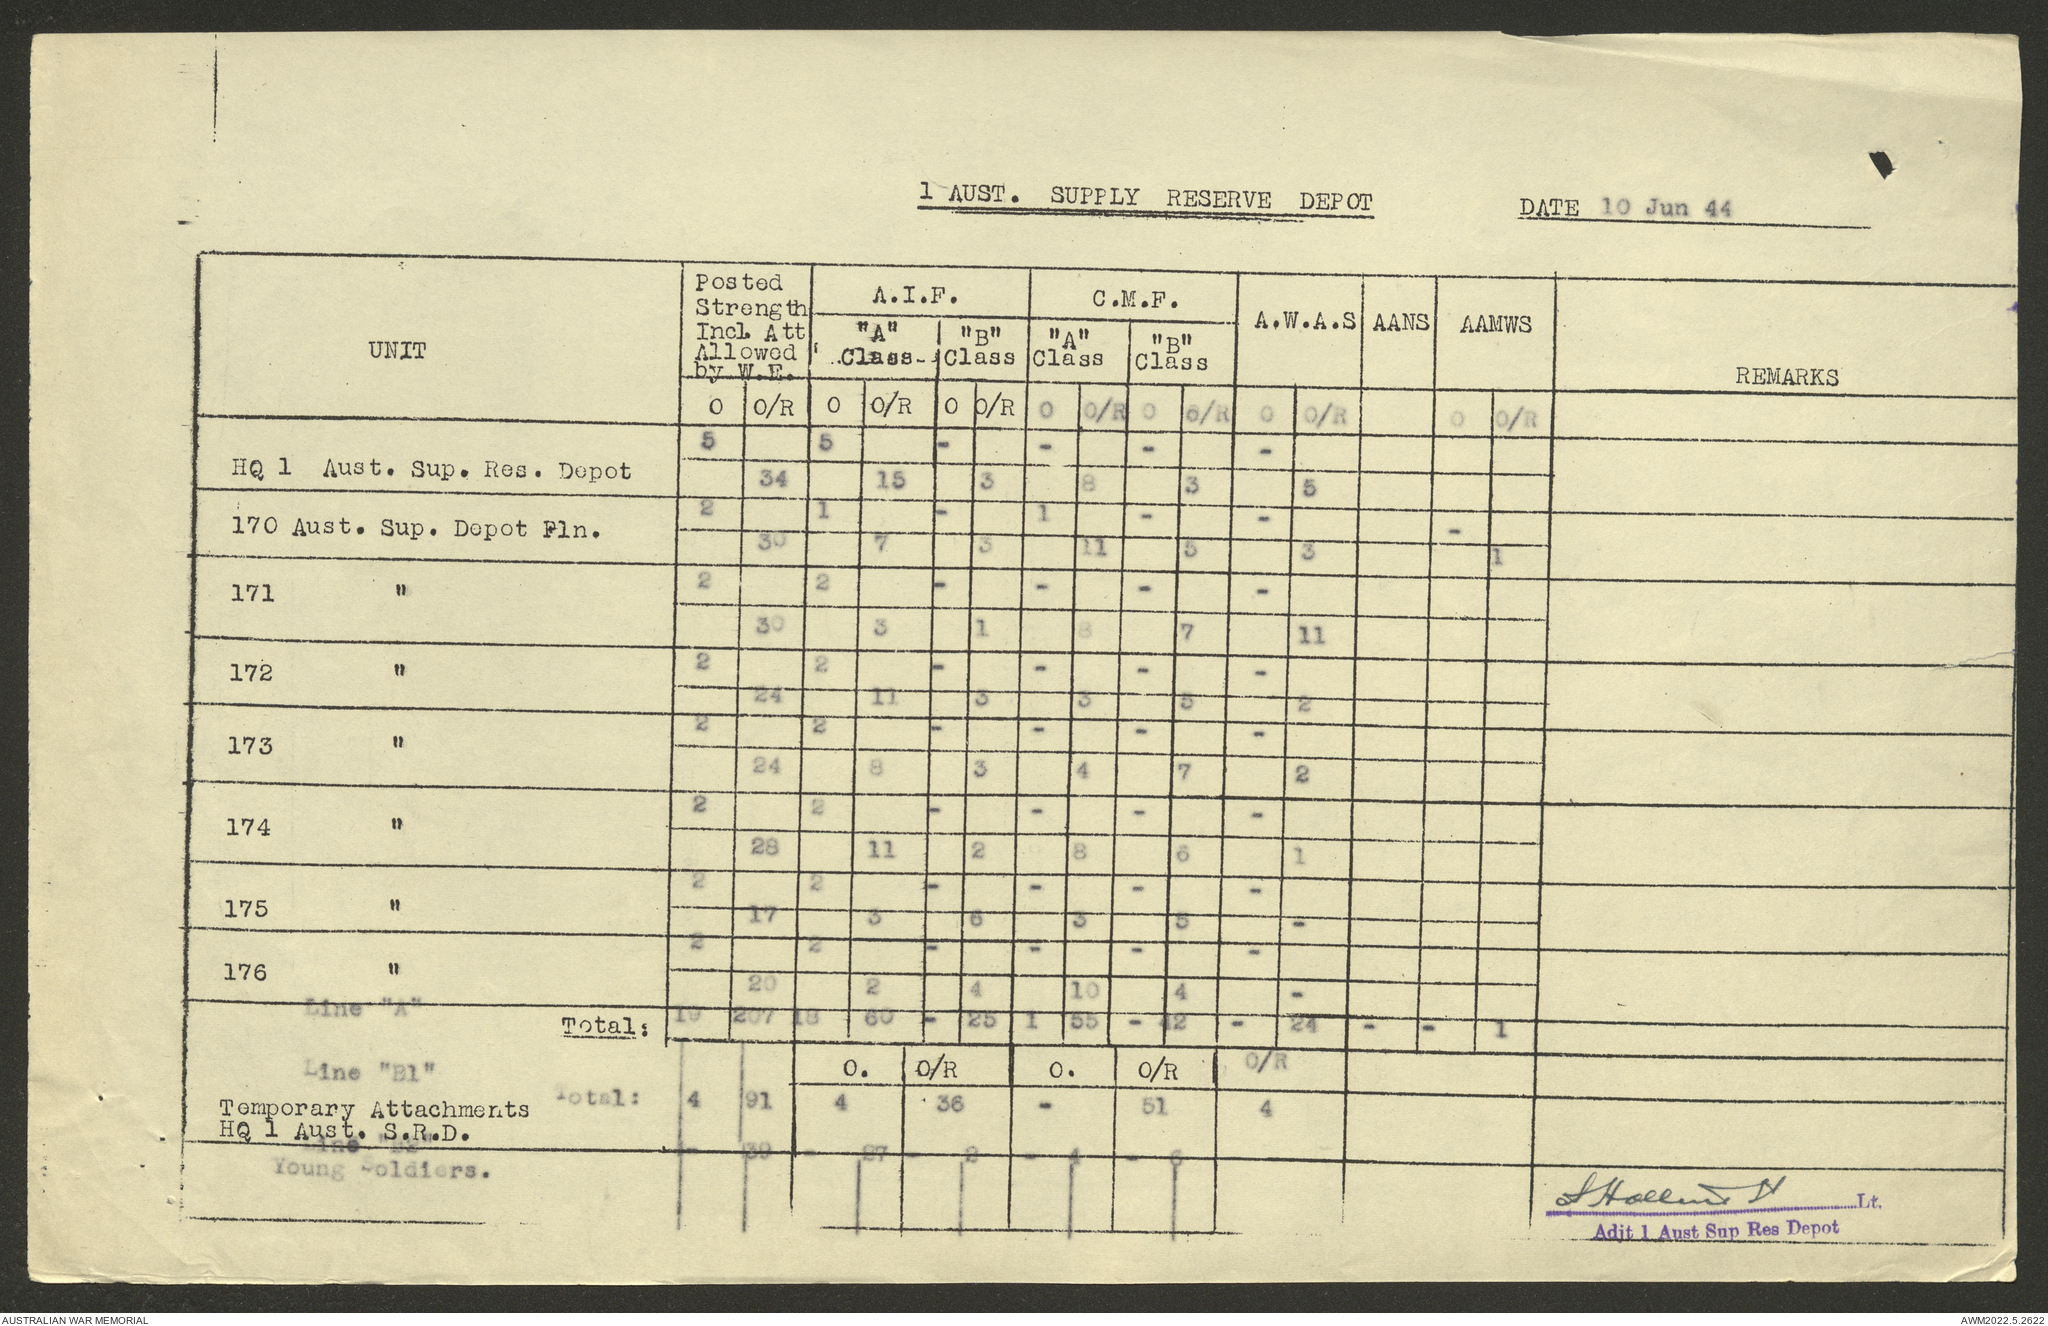 1 AUST. SUPPLY RESERVE DEPOT DATE 10 Jun 44
UNIT
Posted
Strength
Incl. Att
Allowed
by W.E.
A.I.F. C.M.F. A.W.A.S AANS AAMWS REMARKS
"A" Class "B" Class "A" Class "B" Class
O O/R O O/R O O/R O O/R O 6/R O O/R O O/R
5 5 - - - -
HQ 1 Aust. Sup. Res. Depot 34 15 3 8 3 5
2 1 - 1 - - -
170 Aust. Sup. Depot Pln. 30 7 3 11 5 3 1
2 2 - - - -
171 " 30 3 1 8 7 11
2 2 - - - -
172 " 24 11 3 3 5 2
2 2 - - - -
173 " 24 8 3 4 7 2
2 2 - - - -
174 " 28 11 2 8 6 1
2 2 - - - -
175 " 17 3 6 3 5 -
2 2 - - - -
176 " 20 2 4 10 4 -
Line "A"
Total: 19 207 18 60 - 25 1 55 - 42 - 24 - - 1
O. O/R O. O/R O/R
Line "B1"
Total: 4 91 4 36 - 51 4
Temporary Attachments
HQ 1 Aust. S.R.D.
Line "B2" - 39 - 27 - 2 - 4 - 6
Young Soldiers.
Lt.
Adjt 1 Aust Sup Res Depot
AUSTRALIAN WAR MEMORIAL AWM2022.5.2622